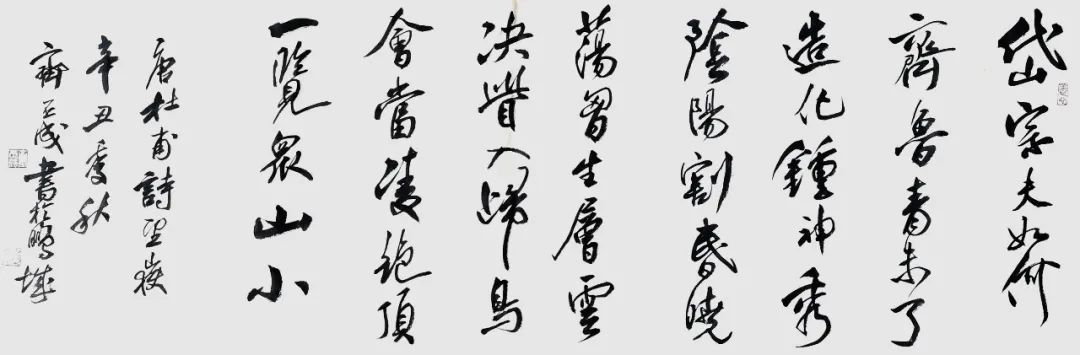 岱宗夫如何
齊魯青未了
造化鍾神秀
陰陽割昬曉
蕩胷生層雲
决眥入歸鳥
會當凌絕頂
一覽衆山小
唐杜甫詩望嶽
辛丑季秋
齊成書於鵬城